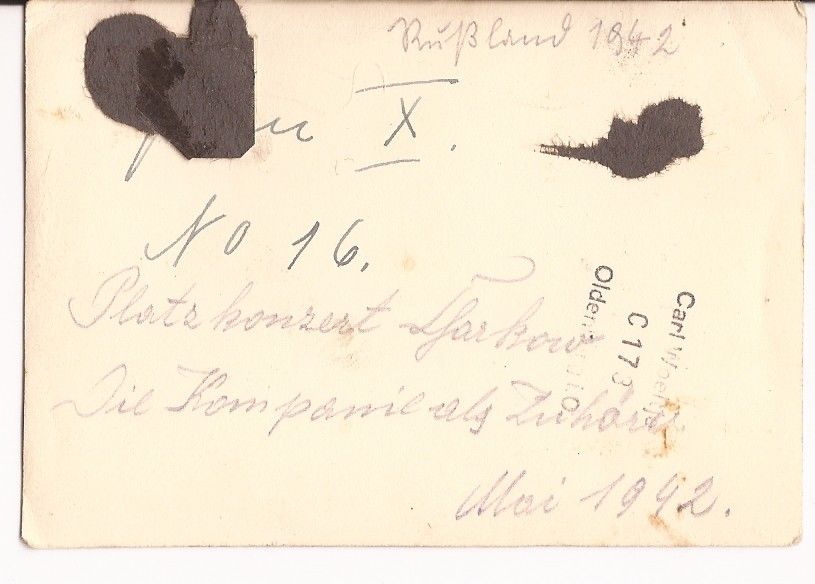 Rußland 1942
X.
No 16.
Platzkonzert Charkow
Die Kompanie als Zuhörer
Mai 1942.
Carl
C 178
Olden i.O.